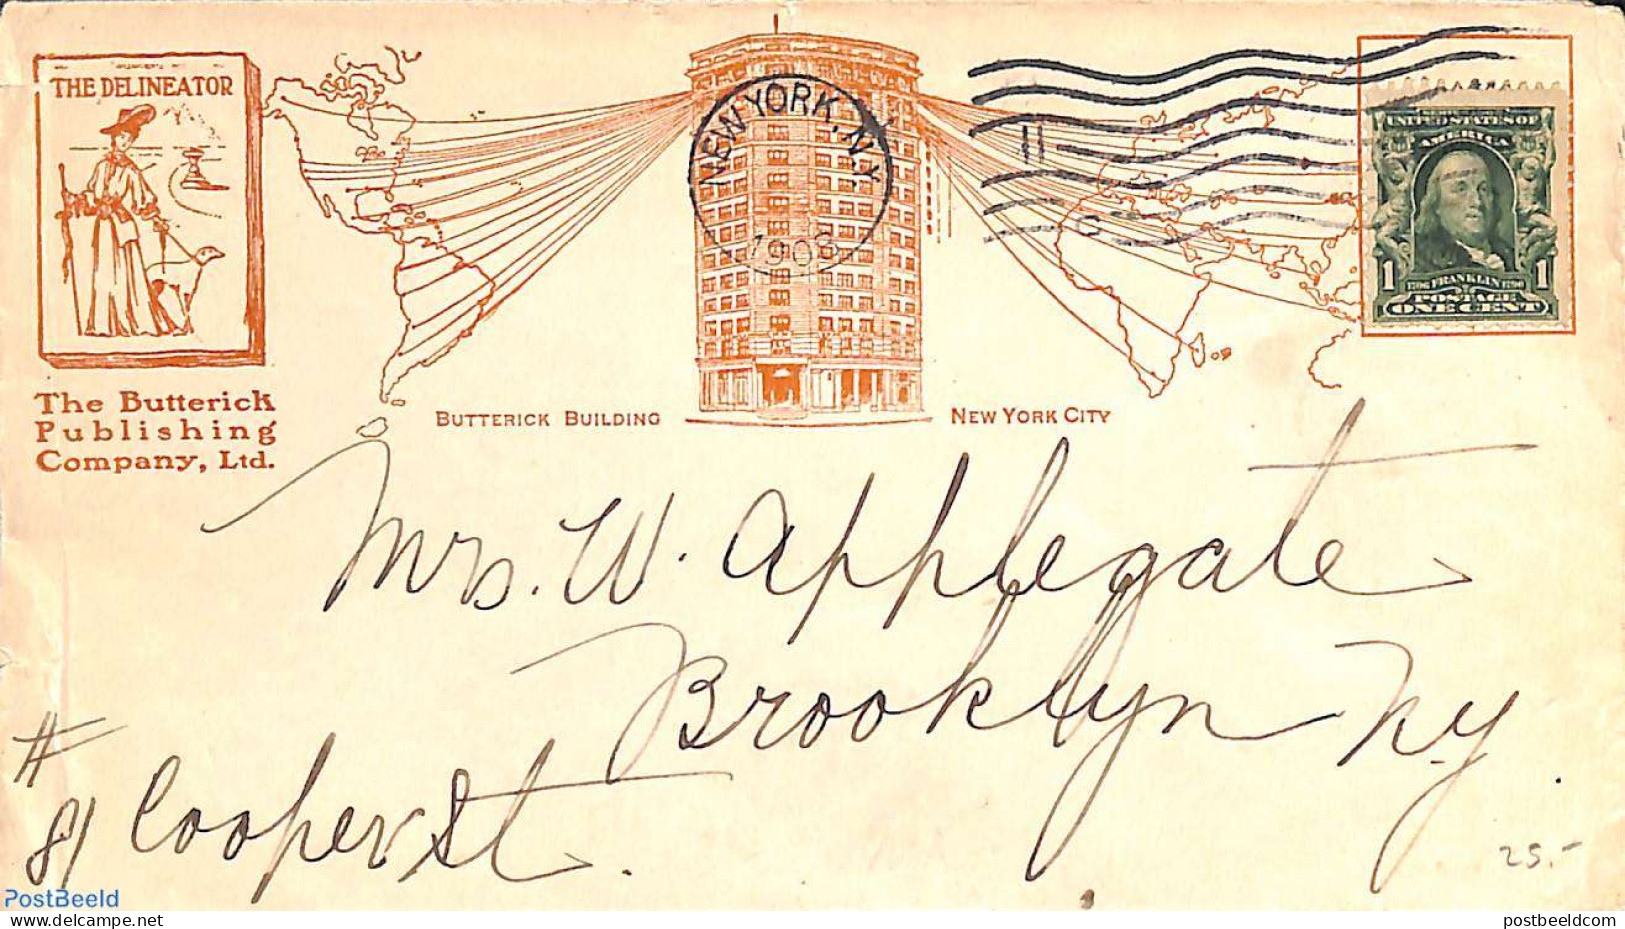 THE DELINEATOR
The Butterick
Publishing
Company, Ltd.
BUTTERICK BUILDING
NEW YORK CITY
NEW YORK, N.Y.
1906
11
C
UNITED STATES OF
AMERICA
1 1706 FRANKLIN 1790 1
POSTAGE
ONE CENT
Mrs. W. Applegate
Brooklyn N.y.
# 81 Cooper St.
25.-
PostBeeld
www.postbeeld.com
postbeeldcom